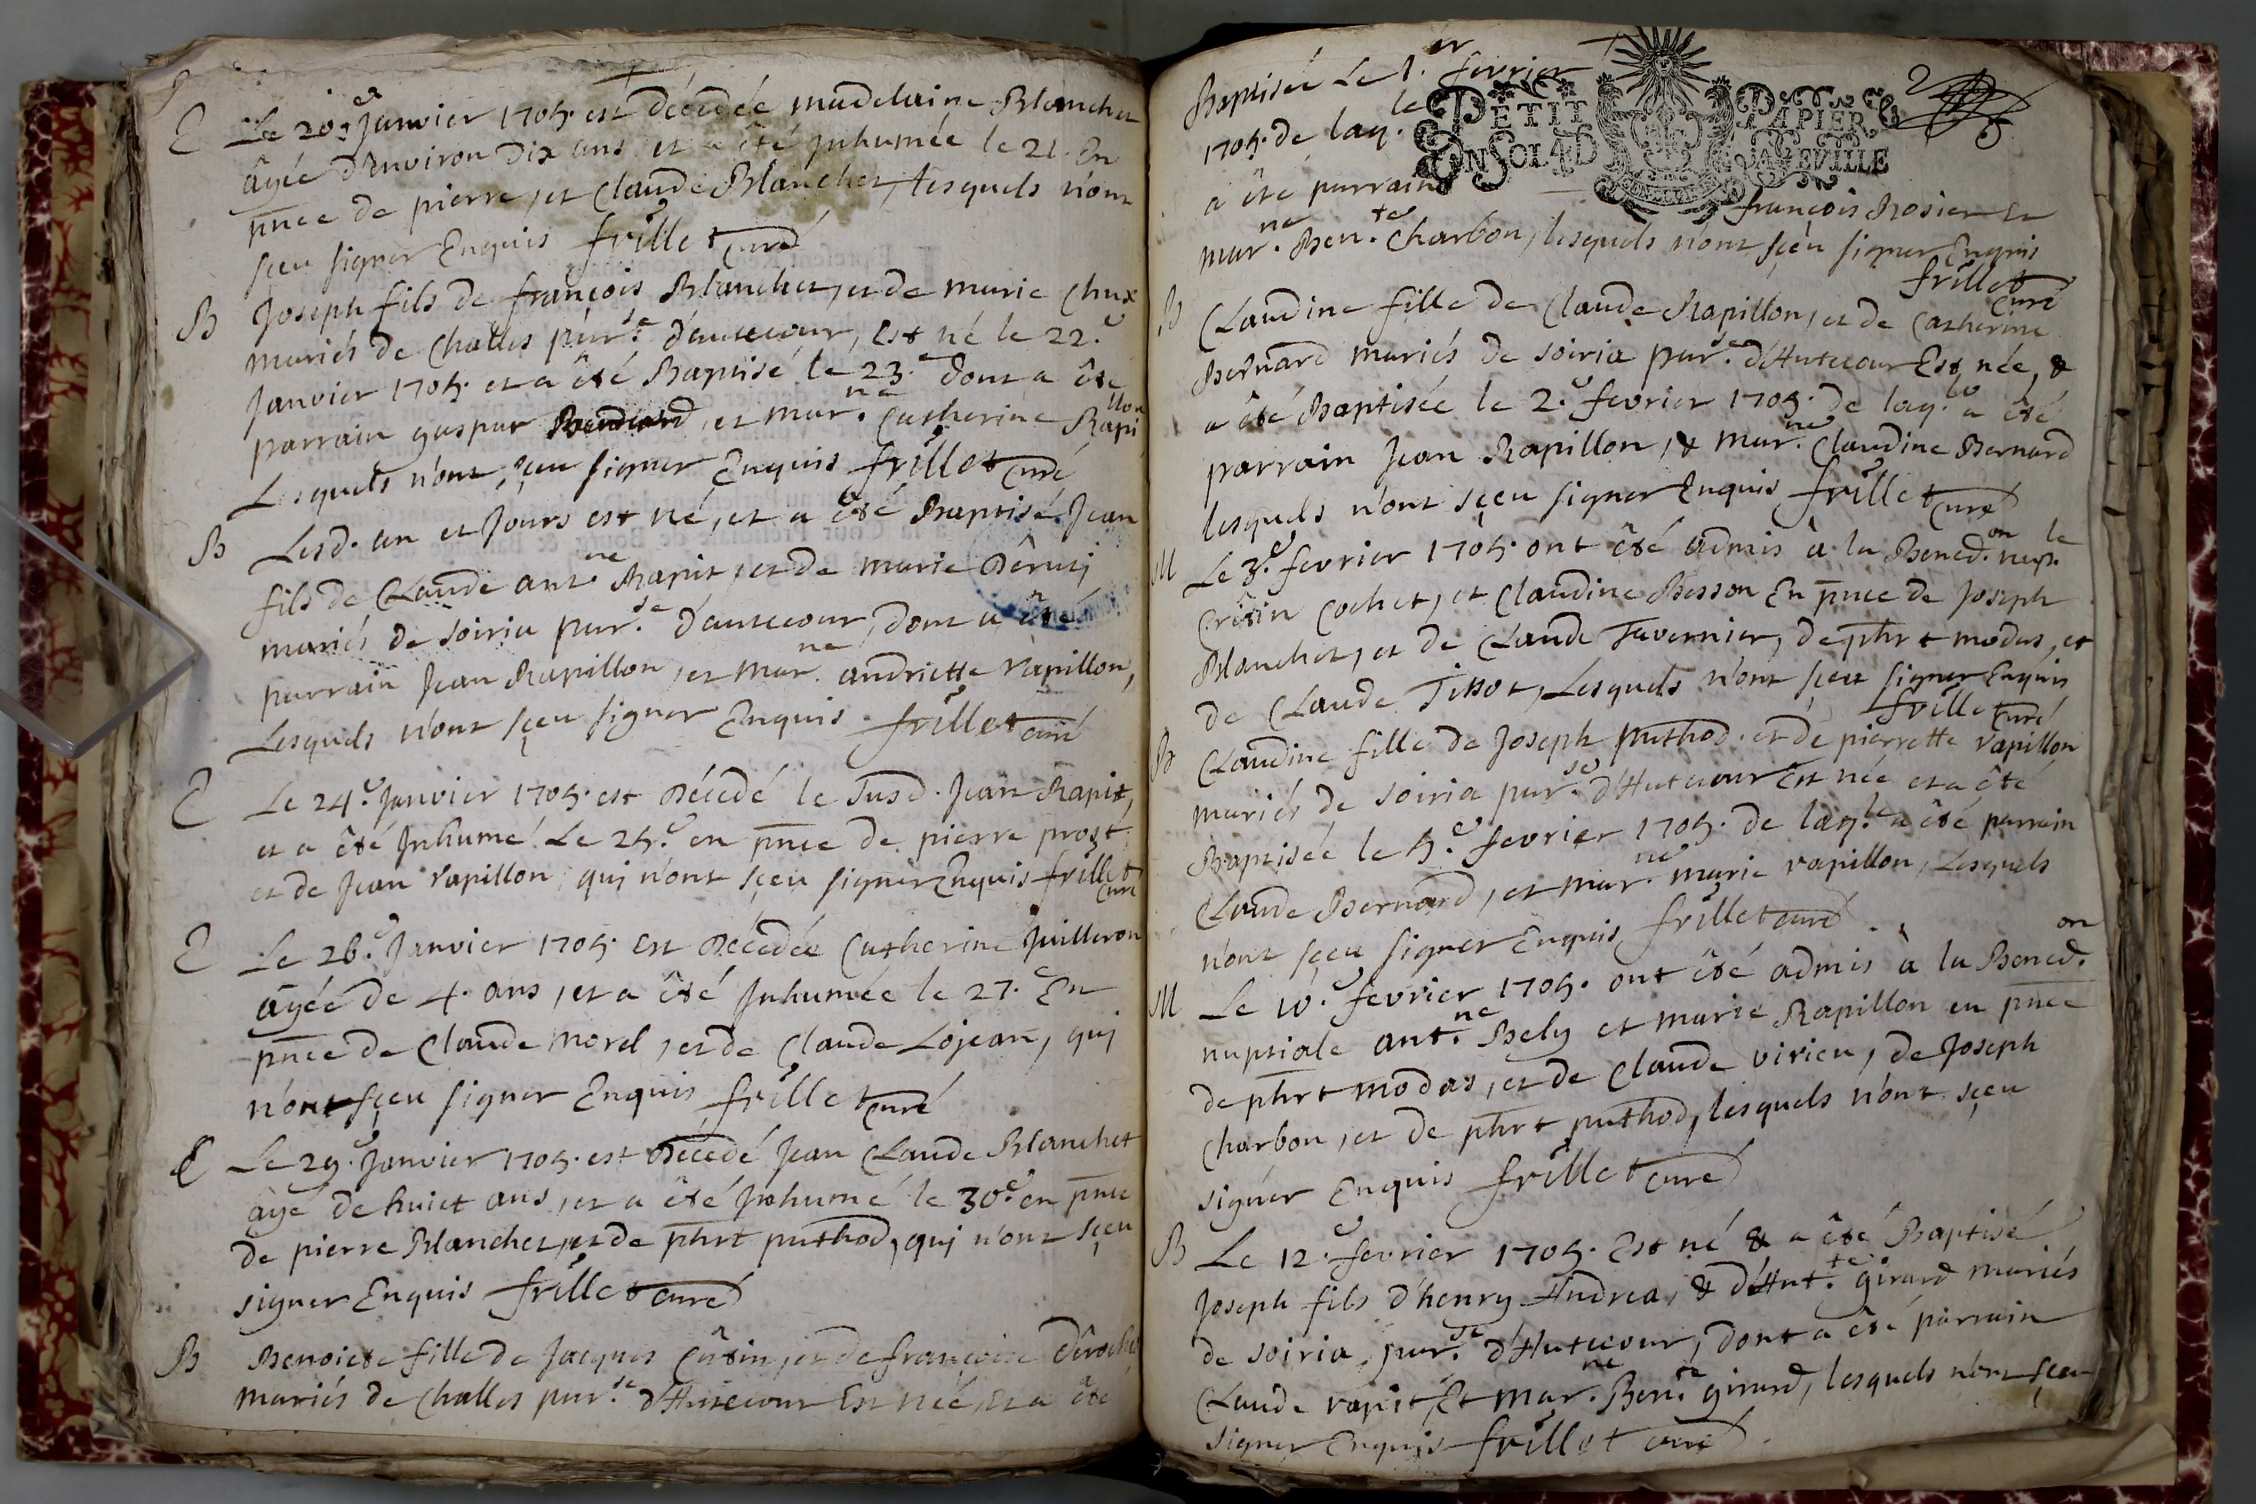 E Le 20.e Janvier 1705. est décedée madelaine Blanchet
âgée d'Environ Dix ans et a été Inhumée le 21. En
pnce de pierre, et Claude Blanchet, lesquels n'ont
sçeu signer Enquis frillet curé
B Joseph fils de françois Blanchet, et de marie Chux
mariés de Challes parr.se d'autecour, Est né le 22.e
Janvier 1705. et a êté Baptisé le 23.e dont a êté
parrain gaspar Bernard, et mar.ne Catherine Rapillon
Lesquels n'ont sçeu signer Enquis frillet curé
B Lesd. an et Jours est né, et a êté Baptisé Jean
fils de Claude ant.ne Rapit, et de marie
mariés de soiria parr.se d'autecour, dont a êté
parrain Jean Rapillon, et mar.ne andriette rapillon,
Lesquels n'ont sçeu signer Enquis frillet curé
E Le 24.e Janvier 1705. est Décedé le Susd. Jean Rapit,
et a êté Inhumé Le 25.e en pnce de pierre prost
et de Jean rapillon, qui n'ont sçeu signer Enquis frillet curé
E Le 26.e Janvier 1705. est Décedée Catherine Juilleron
agée de 4. ans, et a êté Inhumée le 27.e En
pnce de Claude morel, et de Claude Lojean, qui
n'ont sçeu signer Enquis frillet curé
E Le 29.e Janvier 1705. est Décedé Jean Claude Blanchet
agé de huict ans, et a êté Inhumé le 30.e en pnce
de pierre Blanchet, et de phrt puthod, qui n'ont sçeu
signer Enquis frillet curé
B Benoiete fille de Jacques et de francoise
mariés de Challes parr.se d'Hutecour Est née, et a êté
Baptisée Le 1.er fevrier
1705. de laq.le
a êté parrain
françois Rosier et
mar.ne Ben.te Charbon, lesquels n'ont sçeu signer Enquis
frillet curé
PETIT PAPIER
UN SOL 4D LA FEUILLE
2
B Claudine fille de Claude Rapillon, et de Catherine
Bernard mariés de soiria parr.se d'Hutecour Est née, &
a êté Baptisée le 2.e fevrier 1705. de laq.le a êté
parrain Jean Rapillon, & mar.ne Claudine Bernard
lesquels n'ont sçeu signer Enquis frillet curé
M Le 3.e fevrier 1705. ont êté admis â la Bened.on nup.le
Crêtin Cochet, et Claudine Besson En pnce de Joseph
Blanchet, et de Claude Tavernier, de phrt modas, et
de Claude Tissot, Lesquels n'ont sçeu signer Enquis
frillet curé
B Claudine fille de Joseph puthod. et de pierrette rapillon
mariés de soiria parr.se d'Hutecour Est née et a êté
Baptisée le 5.e fevrier 1705. de laq.le a êté parrain
Claude Bernard, et mar.ne marie rapillon, Lesquels
n'ont sçeu signer Enquis frillet curé
M Le 10.e fevrier 1705. ont êté admis à la Bened.on
nuptiale ant.ne Bely et marie Rapillon en pnce
de phrt modas, et de Claude virieu, de Joseph
Charbon, et de phrt puthod, lesquels n'ont sçeu
signer Enquis frillet curé
B Le 12.e fevrier 1705. Est né & a êté Baptisé
Joseph fils d'henry Andrea, & d'Ant.te girard mariés
de soiria, parr.se d'Hutecour, dont a êté parrain
Claude rapit, Et mar.ne Ben.te girard, lesquels n'ont sçeu
signer Enquis frillet curé